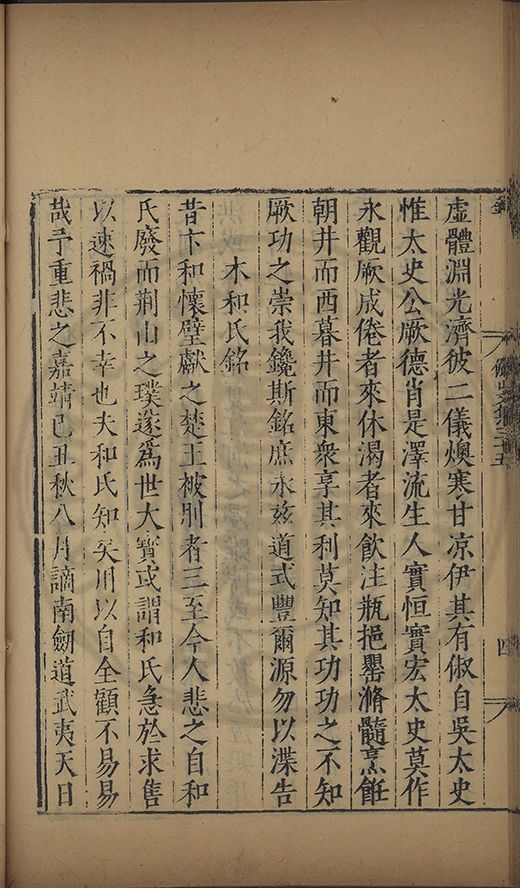 虛體淵光濟彼二儀燠寒甘凉伊其有俶自吳太史
惟太史公厥德肖是澤流生人實恒實宏太史莫作
永觀厥成倦者來休渴者來飲注瓶挹罌滫髓烹飪
朝井而西暮井而東衆享其利莫知其功功之不知
厥功之崇我鑱斯銘庶永玆道式豐爾源勿以渫告
木和氏銘
昔卞和懷璧獻之楚王被刖者三至今人悲之自和
氏廢而荆山之璞遂爲世大寶或謂和氏急於求售
以速禍非不幸也夫和氏知矣用以自全顧不易易
哉予重悲之嘉靖己丑秋八月謫南劒道武夷天日